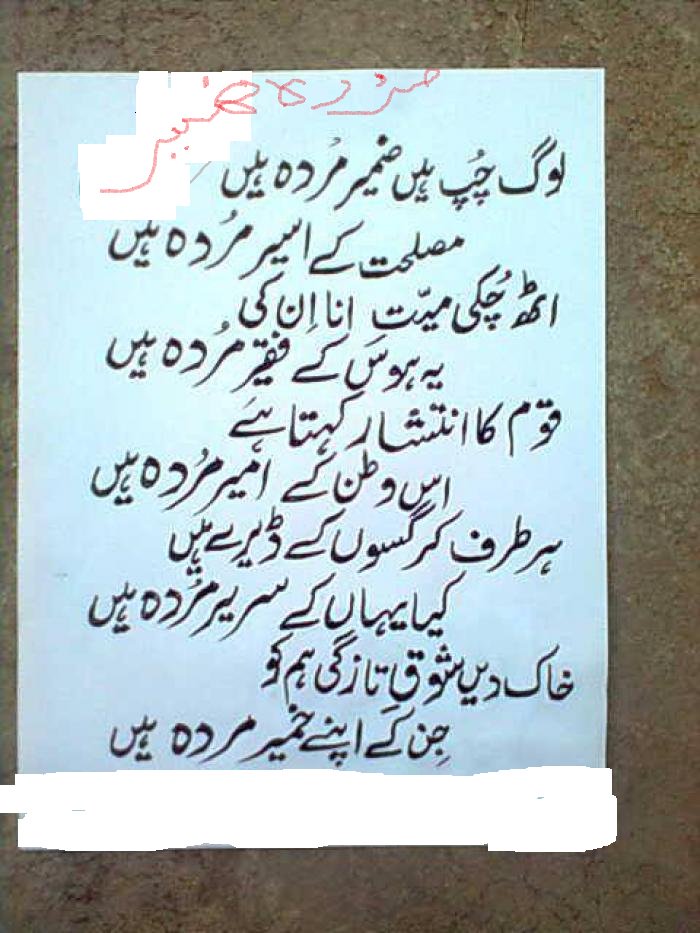 مردہ ضمیر
لوگ چُپ ہیں ضمیر مُردہ ہیں
مصلحت کے اسیر مُردہ ہیں
اٹھ چُکی میّت انا اِن کی
یہ ہوس کے فقیر مُردہ ہیں
قوم کا انتشار کہتا ہے
اس وطن کے امیر مُردہ ہیں
ہر طرف کرگسوں کے ڈیرے ہیں
کیا یہاں کے سریر مُردہ ہیں
خاک دیں شوقِ تازگی ہم کو
جِن کے اپنے خمیر مردہ ہیں